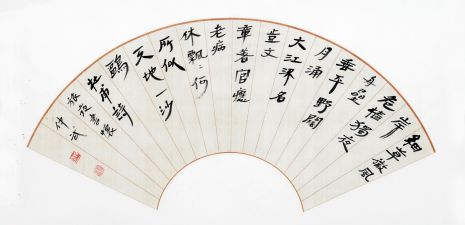 細草微風
岸
危檣獨夜
舟星
垂平野闊
月涌
大江流名
豈文
章著官應
老病
休飄〻何
所似
天地一沙
鷗
杜甫詩
旅夜書懷
仲武